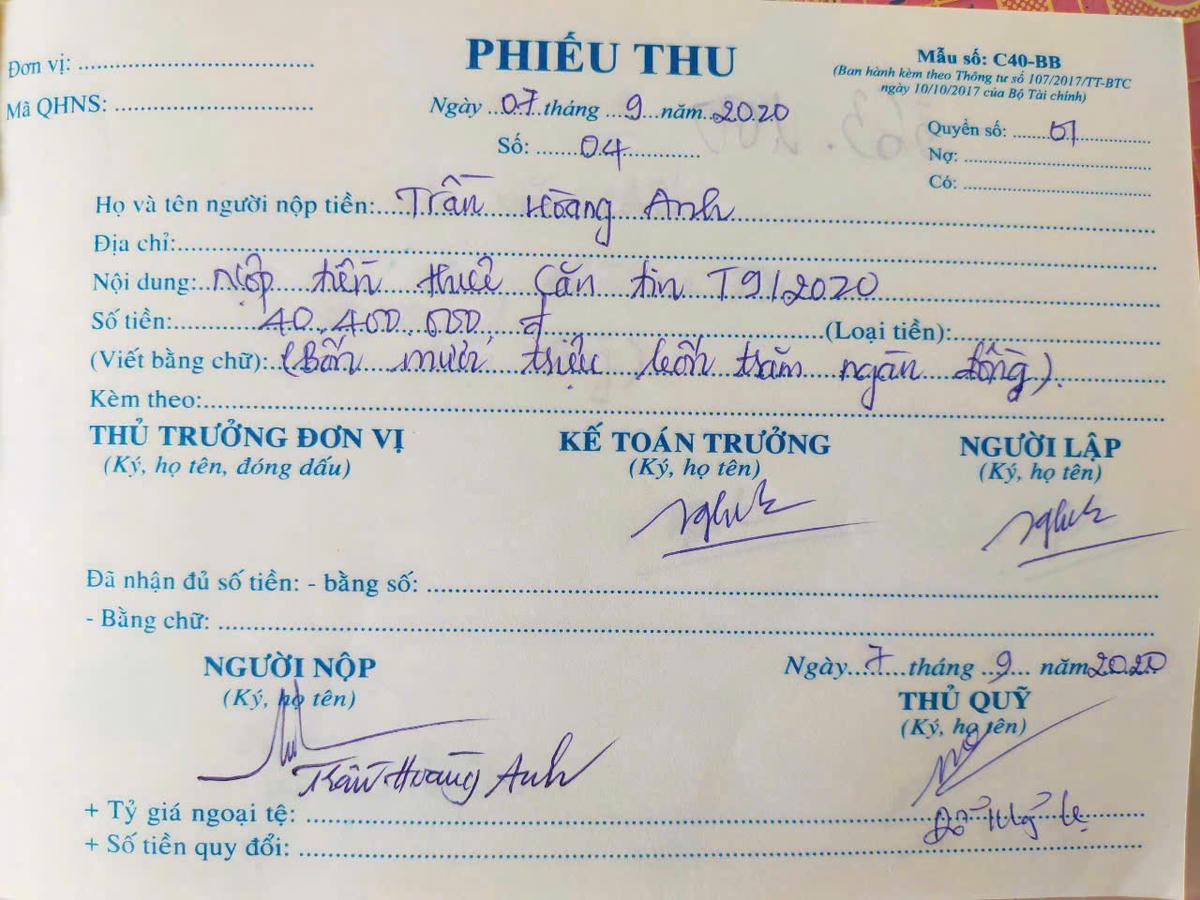 PHIẾU THU
Đơn vị: ........................................
Mã QHNS: ...................................
Ngày ..07..tháng ..9...năm..2020
Số: .......04.............
Mẫu số: C40-BB
(Ban hành kèm theo Thông tư số 107/2017/TT-BTC
ngày 10/10/2017 của Bộ Tài chính)
Quyển số: ......01......
Nợ: ..............................
Có: ..............................
Họ và tên người nộp tiền:...Trần Hoàng Anh
Địa chỉ:........................................
Nội dung:..Nộp tiền thuê Căn tin T9/2020
Số tiền:.........40.400.000 đ..........(Loại tiền):....................
(Viết bằng chữ):.(Bốn mươi triệu bốn trăm ngàn đồng).
Kèm theo:........................................
THỦ TRƯỞNG ĐƠN VỊ
(Ký, họ tên, đóng dấu)
KẾ TOÁN TRƯỞNG
(Ký, họ tên)
NGƯỜI LẬP
(Ký, họ tên)
Đã nhận đủ số tiền: - bằng số: ........................................
- Bằng chữ: ........................................
Ngày...7...tháng ..9... năm2020
NGƯỜI NỘP
(Ký, họ tên)
Trần Hoàng Anh
THỦ QUỸ
(Ký, họ tên)
+ Tỷ giá ngoại tệ: ........................................
+ Số tiền quy đổi: ........................................